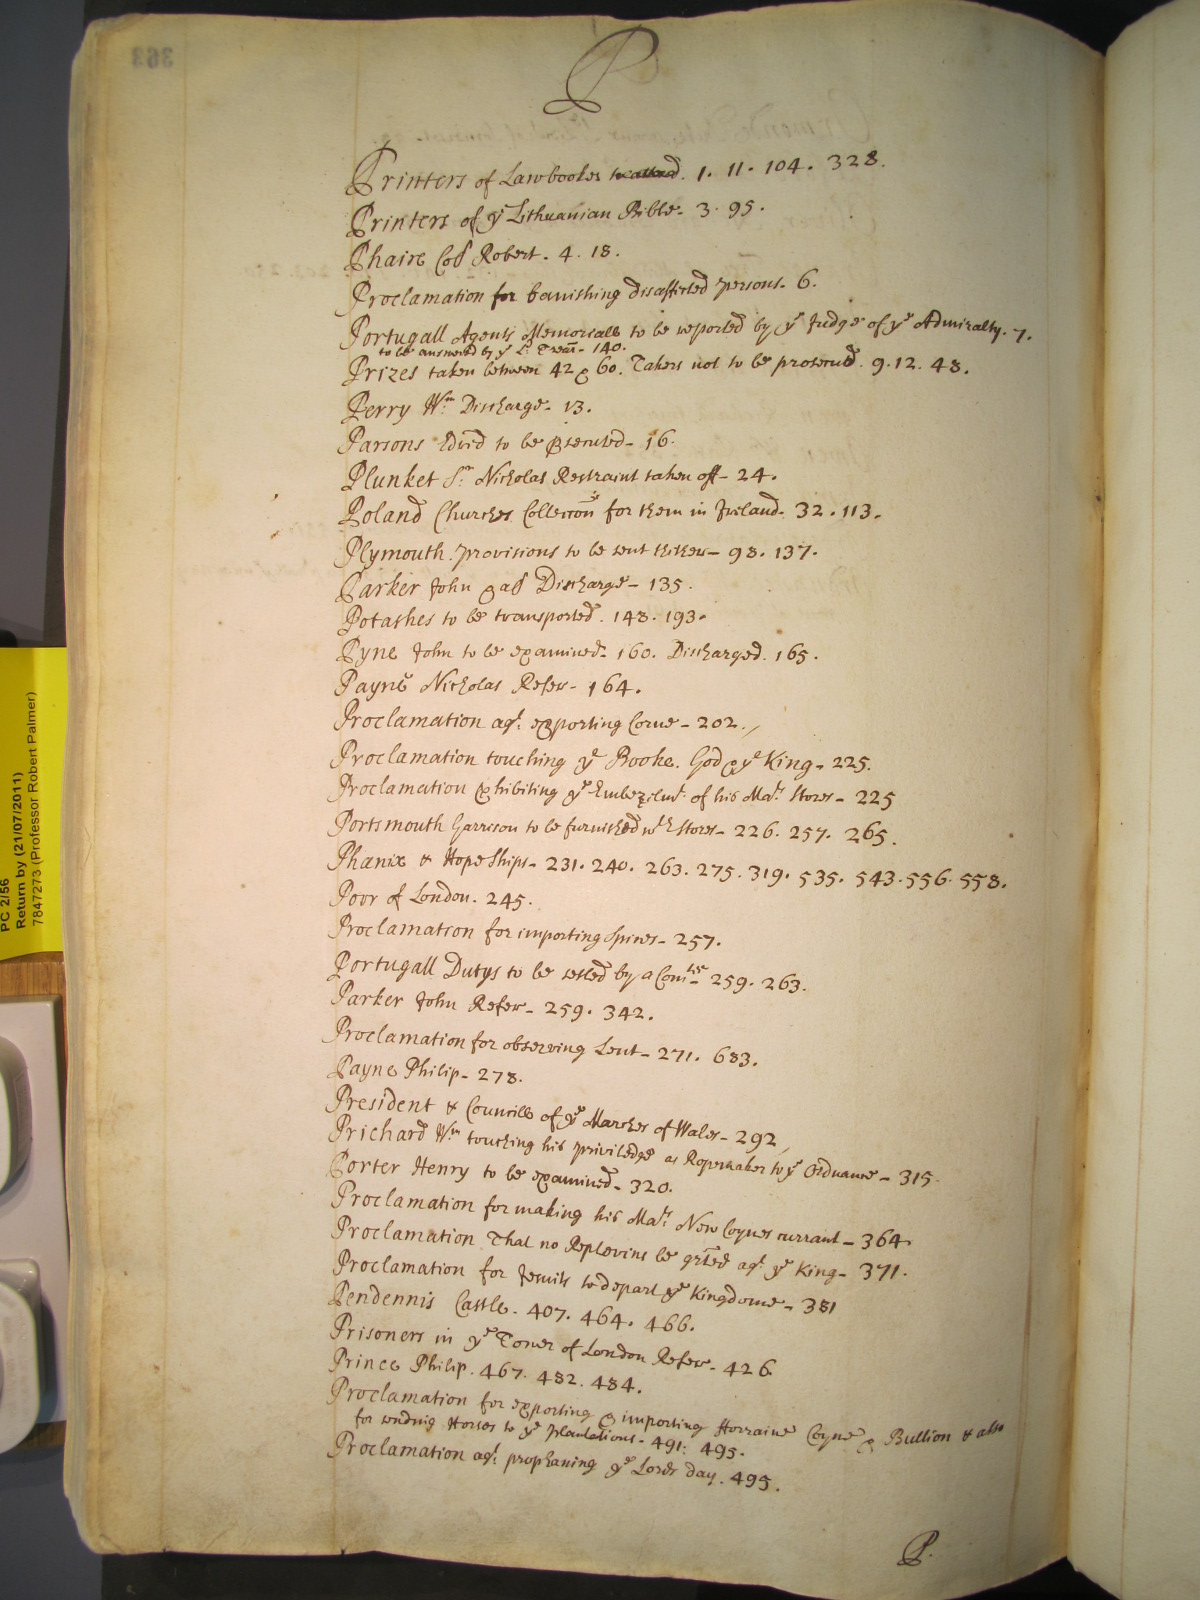 P
Printers of Lawbookes 1. 11. 104. 328.
Printers of ye Lithuanian Bible. 3. 95.
Phaire Col Robert. 4. 18.
Proclamation for banishing disaffected persons. 6.
Portugall Agents Memorialls to be reported by ye Judge of ye Admiralty. 7.
to be answered by ye L: Trea͞r. 140.
Prizes taken between 42 & 60. Takers not to be prosecuted. 9. 12. 48.
Perry Wm Discharge. 13.
Parsons Edwd to be psecuted. 16.
Plunket Sr Nicholas Restraint taken off. 24.
Poland Churches Collecco͞ns for them in Ireland. 32. 113.
Plymouth provisions to be sent thither. 98. 137.
Parker John & al Discharge. 135.
Potashes to be transported. 148. 193.
Pyne John to be examined. 160. Discharged. 165.
Payne Nicholas Refer. 164.
Proclamation agt exporting Corne. 202.
Proclamation touching ye Booke. God & ye King. 225.
Proclamation exhibiting ye Embezlmt of his Mats Stores. 225
Portsmouth Garrison to be furnished wth Stores. 226. 257. 265.
Phœnix & Hope Ships. 231. 240. 263. 275. 319. 535. 543. 556. 558.
Poor of London. 245.
Proclamation for importing Spices. 257.
Portugall Dutys to be setled by a Comtee. 259. 263.
Parker John Refer. 259. 342.
Proclamation for observing Lent. 271. 683.
Payne Philip. 278.
President & Councill of ye Marches of Wales. 292
Prichard Wm touching his priviledge as Ropemaker to ye Ordnance. 315.
Porter Henry to be examined. 320.
Proclamation for making his Mats New Coynes currant. 364.
Proclamation That no Replevins be grted agt ye King. 371.
Proclamation for Jesuits to depart ye Kingdome. 381
Pendennis Castle. 407. 464. 466.
Prisoners in ye Tower of London Refer. 426.
Prince Philip. 467. 482. 484.
Proclamation for exporting & importing Forraine Coyne & Bullion & also
for sending Horses to ye Plantations. 491. 495.
Proclamation agt prophaning ye Lords day. 495.
P.
PC 2/56
Return by (21/07/2011)
7847273 (Professor Robert Palmer)